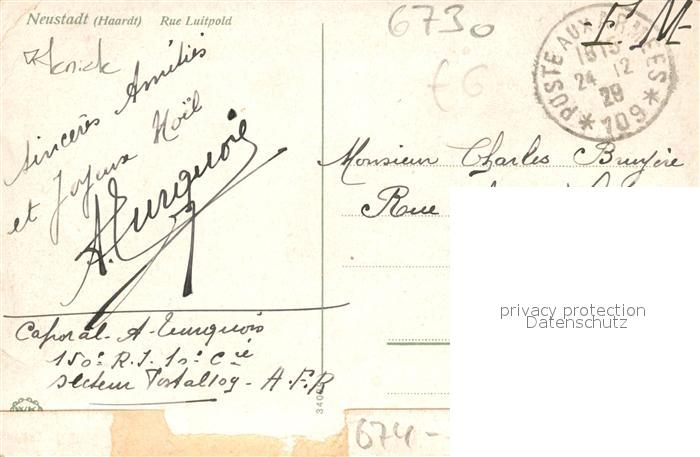 Neustadt (Haardt) Rue Luitpold
6730
£6
F. M-
POSTE AUX ARMEES
1815
24 12
28
* 109 *
Sincères Amitiés
et Joyeux Noël
Monsieur Charles Bruyère
Rue
privacy protection
Datenschutz
Caporal- A-
150e R.I. Cie
Secteur Postal 109 - A.F.R
340
674-